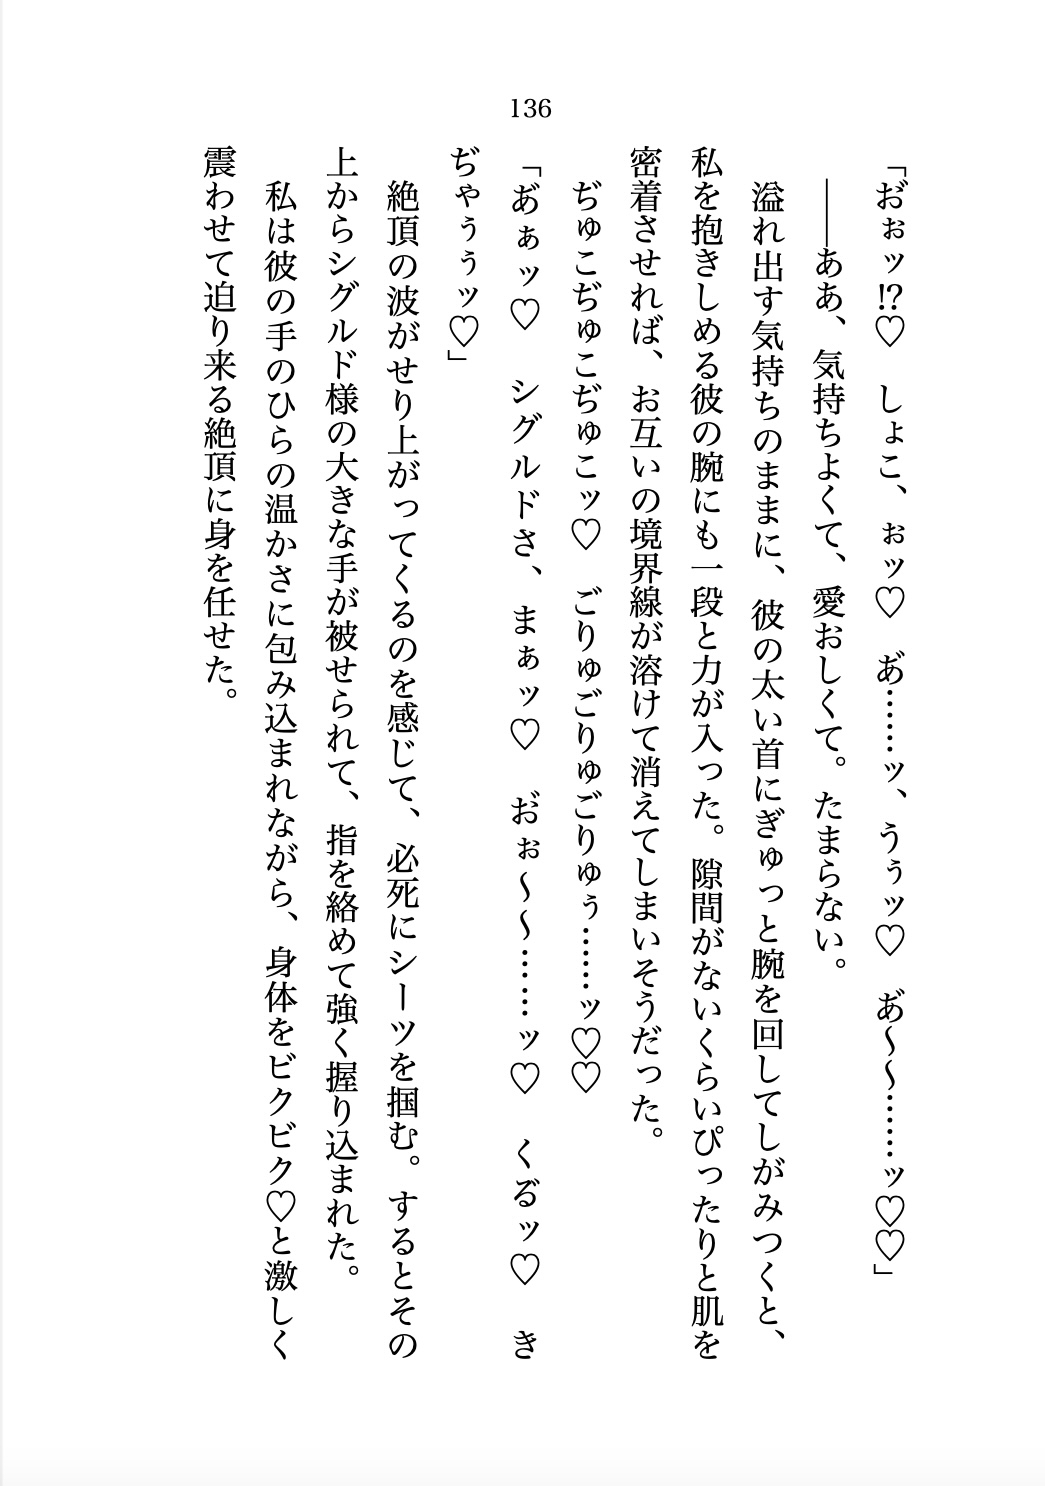 136
「お゙ぉッ!?♡　しょこ、ぉッ♡　あ゙……ッ、うぅッ♡　あ゙～～……ッ♡♡」
――ああ、気持ちよくて、愛おしくて。たまらない。
溢れ出す気持ちのままに、彼の太い首にぎゅっと腕を回してしがみつくと、
私を抱きしめる彼の腕にも一段と力が入った。隙間がないくらいぴったりと肌を
密着させれば、お互いの境界線が溶けて消えてしまいそうだった。
ぢゅこぢゅこぢゅこッ♡　ごりゅごりゅごりゅぅ……ッ♡♡
「あ゙ぁッ♡　シグルドさ、まぁッ♡　お゙ぉ～～……ッ♡　くる゙ッ♡　き
ぢゃぅぅッ♡」
絶頂の波がせり上がってくるのを感じて、必死にシーツを掴む。するとその
上からシグルド様の大きな手が被せられて、指を絡めて強く握り込まれた。
私は彼の手のひらの温かさに包み込まれながら、身体をビクビク♡と激しく
震わせて迫り来る絶頂に身を任せた。